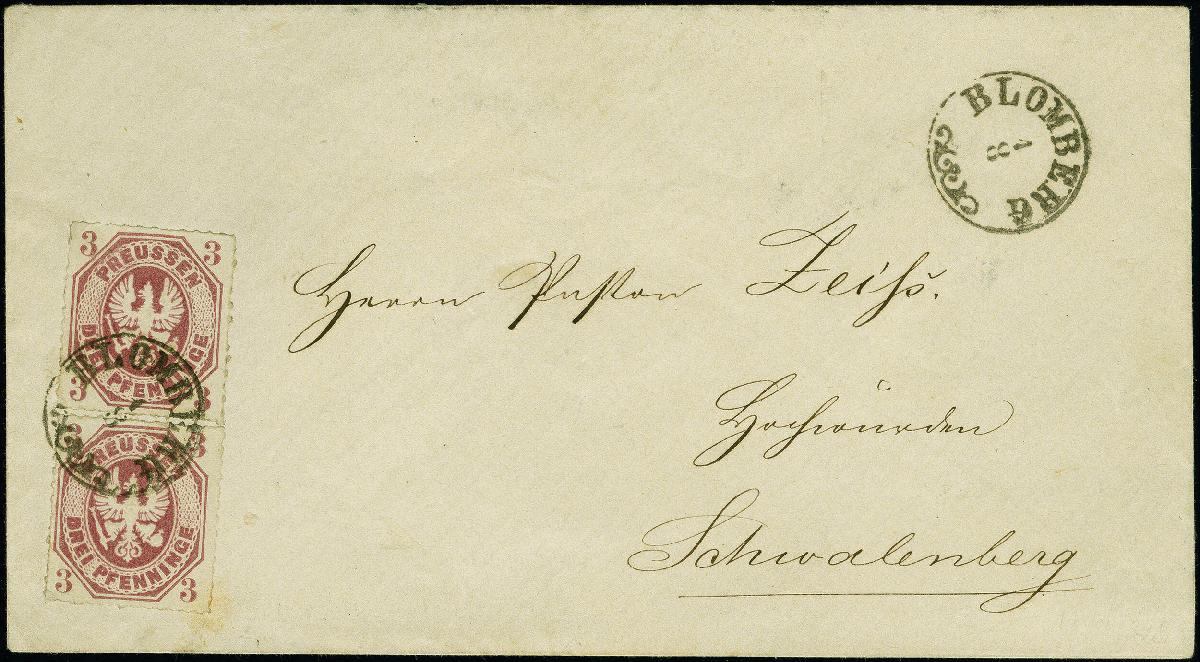 BLOMBERG
1
8
3 3
PREUSSEN
DREI PFENNINGE
3 3
BLOMBERG
3 3
PREUSSEN
DREI PFENNINGE
3 3
Herrn Pastor Zeiß.
Hochwürden
Schwalenberg